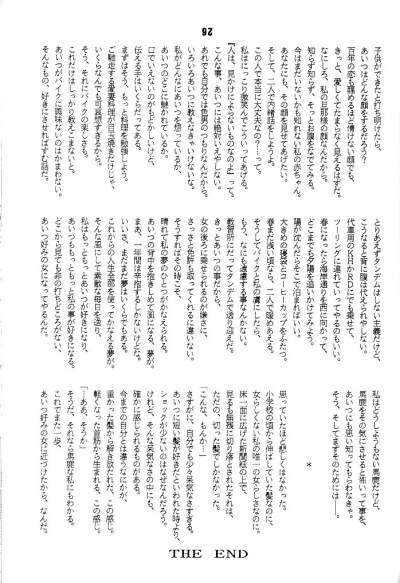 26
子供ができたと打ち明けたら、
あいつはどんな顔をするだろう？
百年の恋も醒めるほど情けない顔でも、
きっと、愛しくてたまらなく思えるはずだ。
なにしろ、私の旦那様の顔なんだから。
知らず知らず、そっとお腹をなでてみる。
今はまだいないかも知れない私の赤ちゃん。
あなたにも、その顔を見せてあげたい。
そして、二人で内緒話をしようよ。
この人で本当に大丈夫なの？──って。
私はにっこり微笑んでこういってあげる。
「人は、見かけによらないものなのよ」って。
こんな事、あいつには絶対いえやしない。
あれでも自分では色男のつもりなんだから。
いろいろあいつに教えなきゃいけないな。
私がどんなにあいつを想っているか、
あいつのどこに魅かれているか。
口でいえないのがもどかしいけど、
伝える手はいくらだってある。
まずはそう、もっと料理を勉強しよう。
ご馳走する愛妻料理が目玉焼きだけじゃ、
いくらなんでも可哀想すぎるから。
そう、それにバイクの後ろも。
これだけはしっかり教えこまないと。
あいつがバイクに興味ないのはかまわない。
そんなもの、好きにさせればすむ話だ。
とりあえずタンデムはしない主義だけど、
こうなったら背に腹は代えられやしない。
代車用のKHかなにかに二人で乗せて
ツーリングに連れていってやるのもいい。
春になったら海岸通りを西に向かって、
どこまでも夕陽を追いかけてみよう。
陽が沈んだらそこで泊まればいい。
大きめの寝袋とコーヒーカップをふたつ。
春まだ浅い頃なら、一人で暖めあえる。
そうしてバイクと私の虜にしたら、
もう、なにも遠慮する事なんかない。
教習所にだってタンデムで送り迎えだ。
きっとあいつの事だから、
女の後ろに乗せられるのが嫌さに、
さっさと免許も取ってくれるに違いない。
そうすればその時こそ、
晴れて私の夢のひとつがかなえられる。
あいつの背中を抱きしめて風になる、夢が。
まあ、一年間は辛抱するしかないけどな。
いいさ、まだまだ夢はいくらでもある。
これからの人生全部を使ってかなえる夢が。
そんな風にして素敵な毎日を送り、
私はもっともっとあいつが好きになり、
あいつももっともっと私の事が好きになる。
どこから見ても非の打ちどころがない、
あいつ好みの女になってやるんだ。
私はどうしようもない馬鹿だけど、
馬鹿をその気にさせると怖いって事を、
あいつにも思い知ってもらわなきゃ。
そう、そしてまずそのためには──。
＊
思っていたほど悲しくはなかった。
小学校の頃から伸ばしていた髪なのに、
女らしくない私の唯一の女らしさなのに。
床一面に広げた新聞紙の上で、
見るも無残に切り落とされたそれは、
ただの、切った髪でしかなかった。
「こんな、もんか…」
さすがに、自分でも少々呆気なさすぎる。
あいつに短い髪が好きだといわれた時より、
ショックが少ないのはなぜなんだろう。
けれど、そんな呆気なさの中にも、
確かに感じられるものがある。
今までの自分とは違うなにかが、
重かった髪から解き放たれた、この感じ。
軽くなった首筋から生まれる、この感じ。
「…ああ、そうか」
そうだ、それなら馬鹿な私にもわかる。
これでまた一歩、
あいつ好みの女に近づけたから、なんだ。
THE END